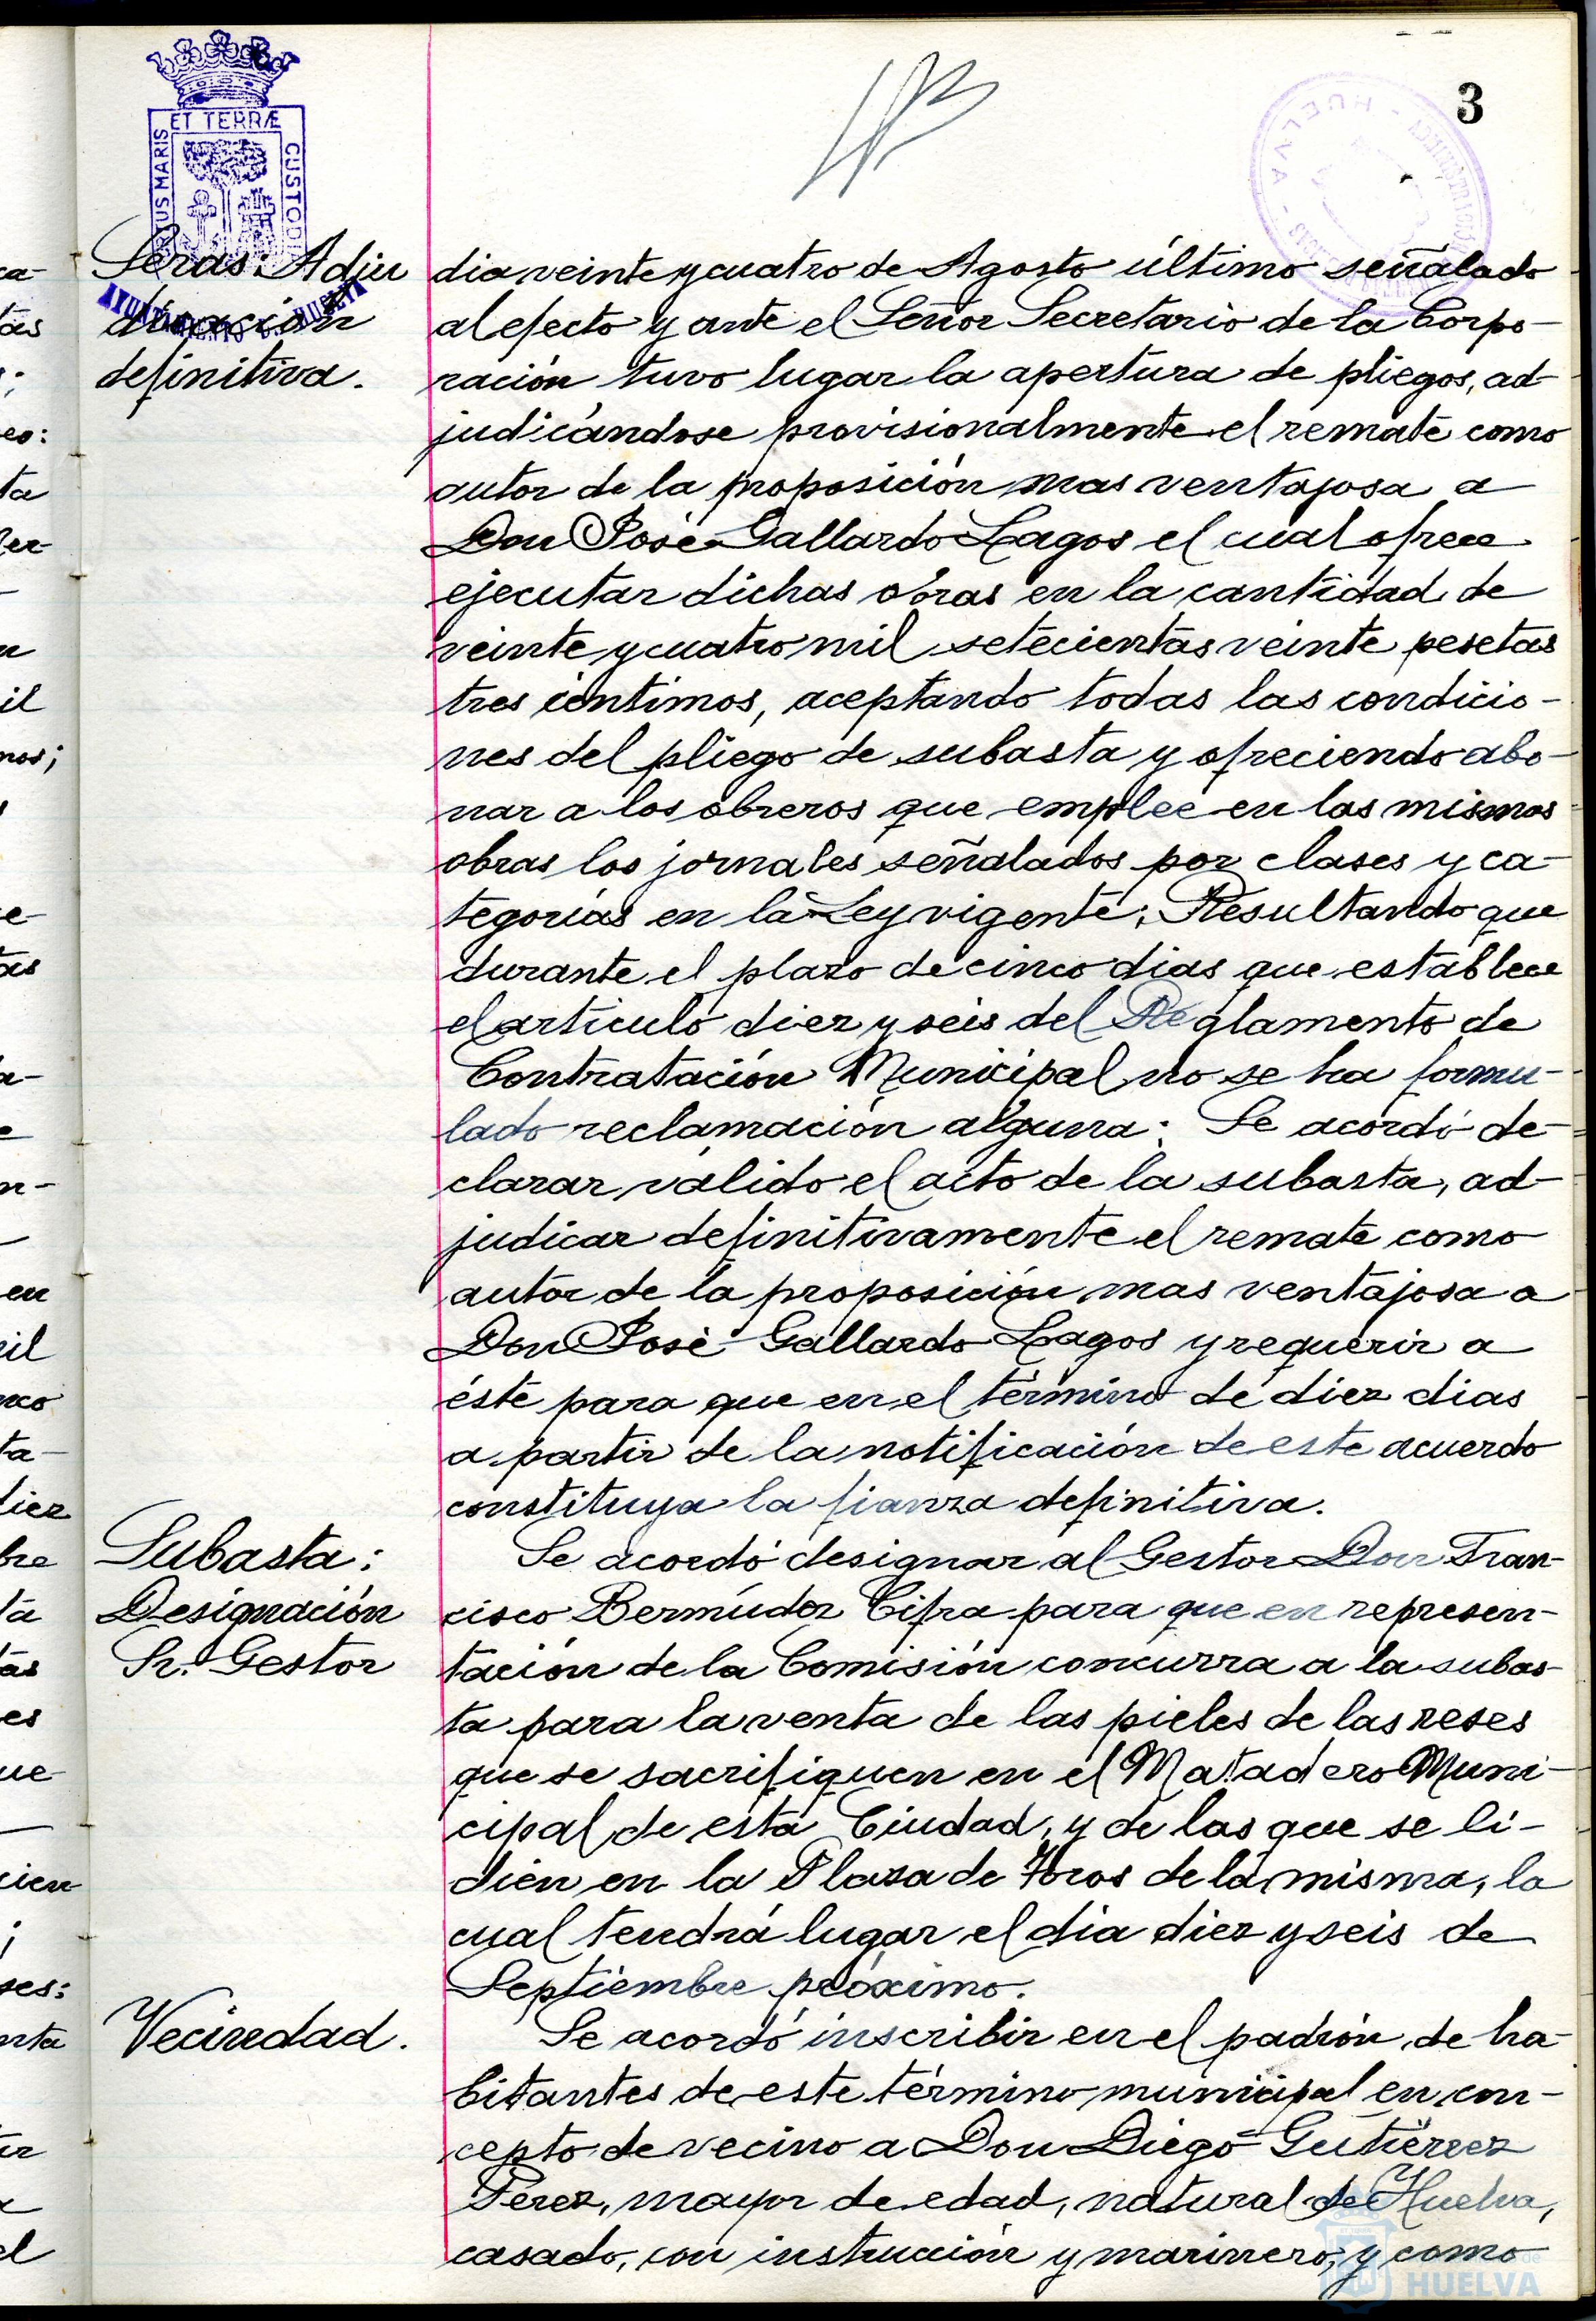 3
ET TERRÆ
CUSTODI
US MARIS
AYUNTAMIENTO DE HUELVA
HUELVA
Seras: Adju
dicación
definitiva.
dia veinte y cuatro de Agosto último señalado
al efecto y ante el Señor Secretario de la Corpo-
ración tuvo lugar la apertura de pliegos, ad-
judicándose provisionalmente el remate como
autor de la proposición mas ventajosa a
Don José Gallardo Lagos el cual ofrece
ejecutar dichas obras en la cantidad de
veinte y cuatro mil setecientas veinte pesetas
tres céntimos, aceptando todas las condicio-
nes del pliego de subasta y ofreciendo abo-
nar a los obreros que emplee en las mismas
obras los jornales señalados por clases y ca-
tegorías en la Ley vigente; Resultando que
durante el plazo de cinco dias que establece
el artículo diez y seis del Reglamento de
Contratación Municipal no se ha formu-
lado reclamación alguna: Se acordó de-
clarar válido el acto de la subasta, ad-
judicar definitivamente el remate como
autor de la proposición mas ventajosa a
Don José Gallardo Lagos y requerir a
éste para que en el término de diez dias
a partir de la notificación de este acuerdo
constituya la fianza definitiva.
Subasta:
Designación
Sr. Gestor
Se acordó designar al Gestor Don Fran-
cisco Bermúdez Cifra para que en represen-
tación de la Comisión concurra a la subas-
ta para la venta de las pieles de las reses
que se sacrifiquen en el Matadero Muni-
cipal de esta Ciudad, y de las que se li-
dien en la Plaza de Toros de la misma, la
cual tendrá lugar el dia diez y seis de
Septiembre próximo.
Vecindad.
Se acordó inscribir en el padrón de ha-
bitantes de este término municipal en con-
cepto de vecino a Don Diego Gutiérrez
Pérez, mayor de edad, natural de Huelva,
casado, con instrucción y marinero; y como
HUELVA